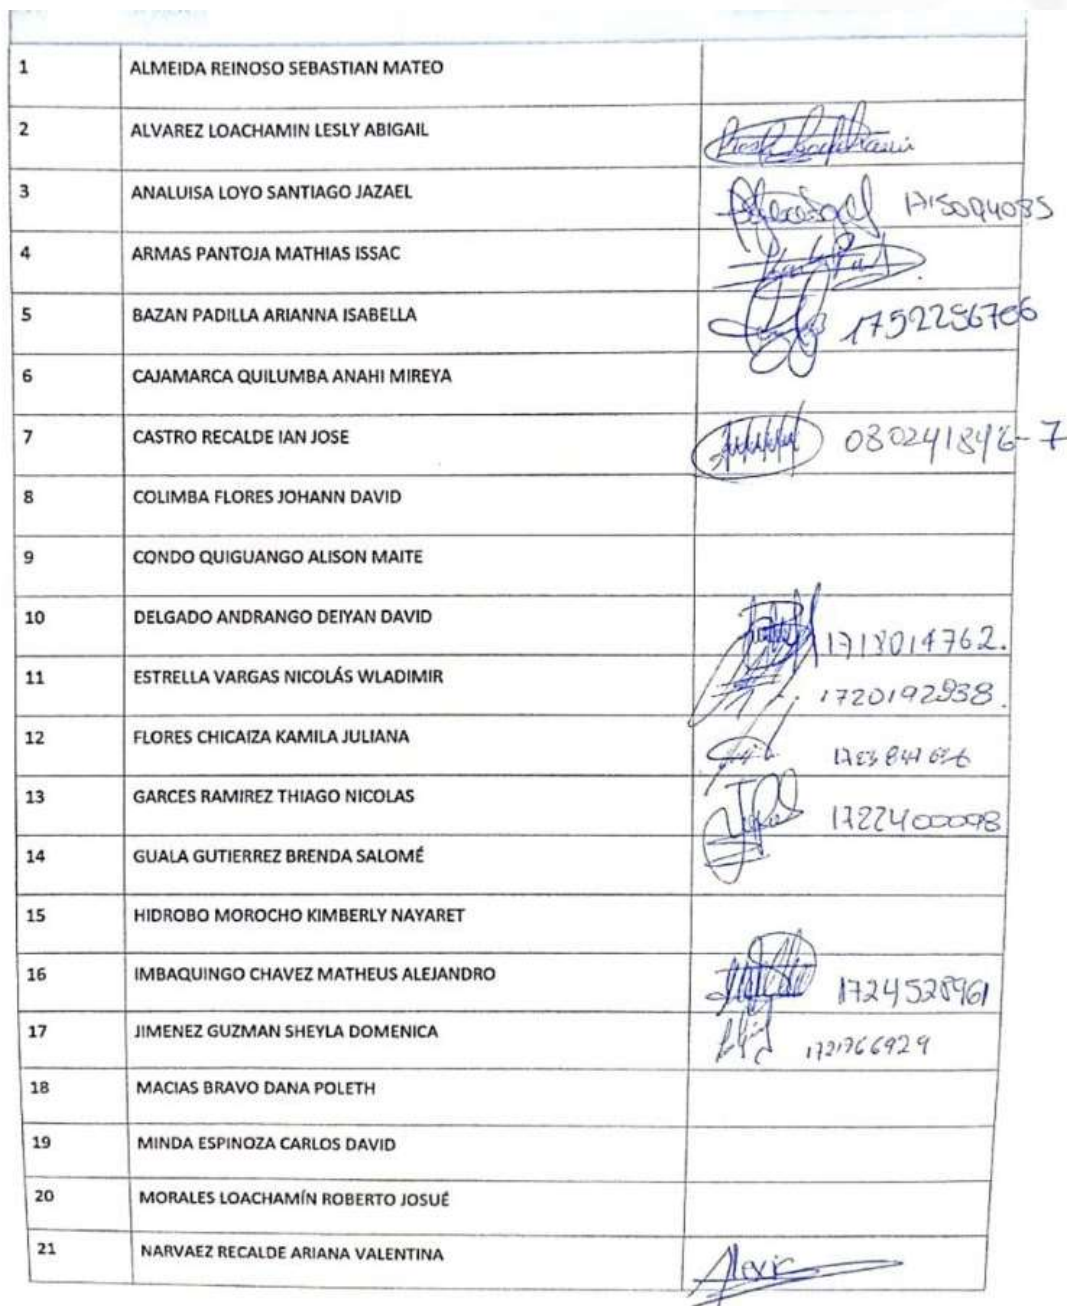 1 ALMEIDA REINOSO SEBASTIAN MATEO
2 ALVAREZ LOACHAMIN LESLY ABIGAIL
3 ANALUISA LOYO SANTIAGO JAZAEL
4 ARMAS PANTOJA MATHIAS ISSAC
5 BAZAN PADILLA ARIANNA ISABELLA
6 CAJAMARCA QUILUMBA ANAHI MIREYA
7 CASTRO RECALDE IAN JOSE
8 COLIMBA FLORES JOHANN DAVID
9 CONDO QUIGUANGO ALISON MAITE
10 DELGADO ANDRANGO DEIYAN DAVID
11 ESTRELLA VARGAS NICOLÁS WLADIMIR 1720192938.
12 FLORES CHICAIZA KAMILA JULIANA
13 GARCES RAMIREZ THIAGO NICOLAS
14 GUALA GUTIERREZ BRENDA SALOMÉ
15 HIDROBO MOROCHO KIMBERLY NAYARET
16 IMBAQUINGO CHAVEZ MATHEUS ALEJANDRO 1724528961
17 JIMENEZ GUZMAN SHEYLA DOMENICA
18 MACIAS BRAVO DANA POLETH
19 MINDA ESPINOZA CARLOS DAVID
20 MORALES LOACHAMÍN ROBERTO JOSUÉ
21 NARVAEZ RECALDE ARIANA VALENTINA Alexis